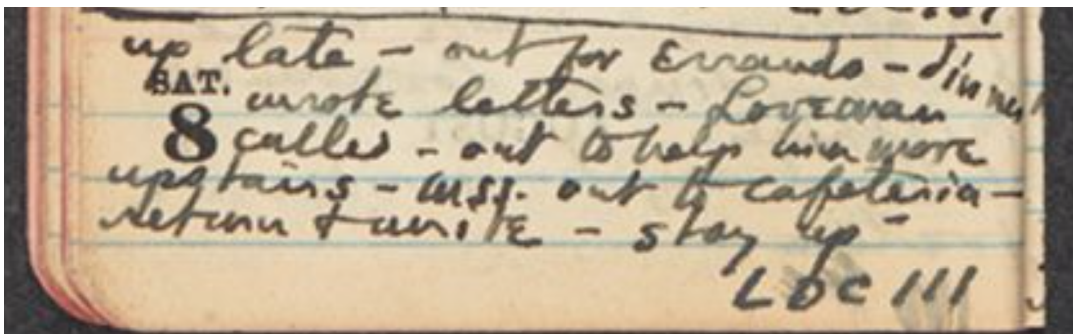 up late – out for Errands – dinner
SAT. wrote letters – Loveman
8 called – out to help him move
upstairs – diss. out to cafeteria –
return & write – stay up –
LDC III